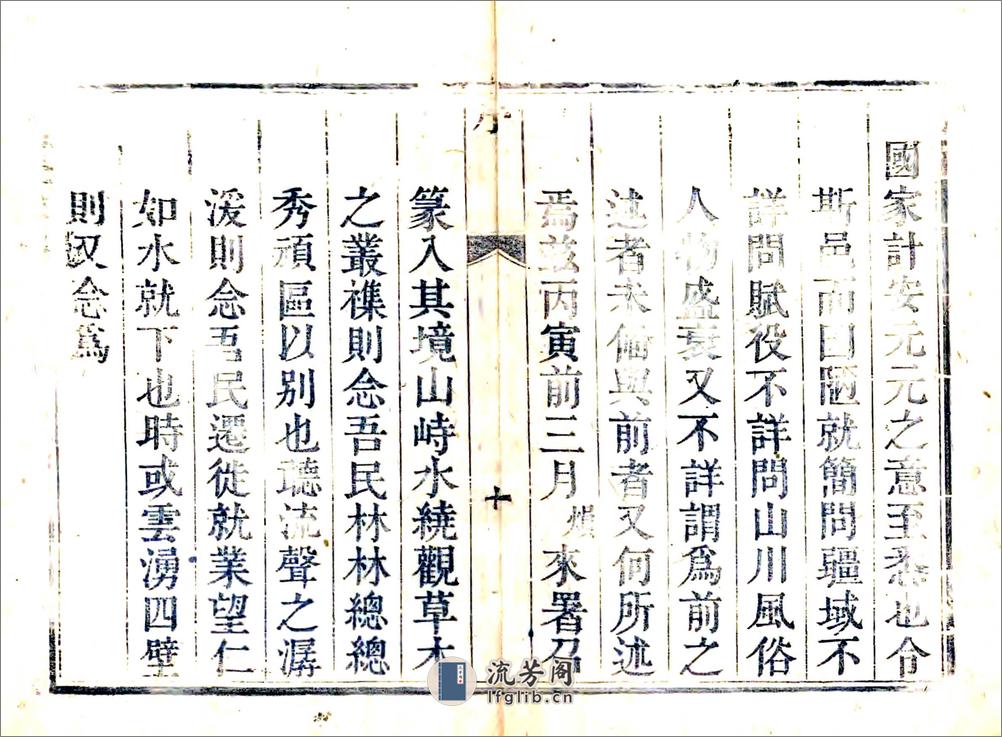 國家計安元元之意至悉也令
斯邑而因陋就簡問疆域不
詳問賦役不詳問山川風俗
人物盛衰又不詳謂爲前之
述者未備與前者又何所述
焉茲丙寅前三月 來署召
序
十
篆入其境山峙水繞觀草木
之叢襍則念吾民林林總總
秀頑區以別也聽流聲之潺
湲則念吾民遷徙就業望仁
如水就下也時或雲湧四壁
則又念爲
流芳阁
lfglib.cn